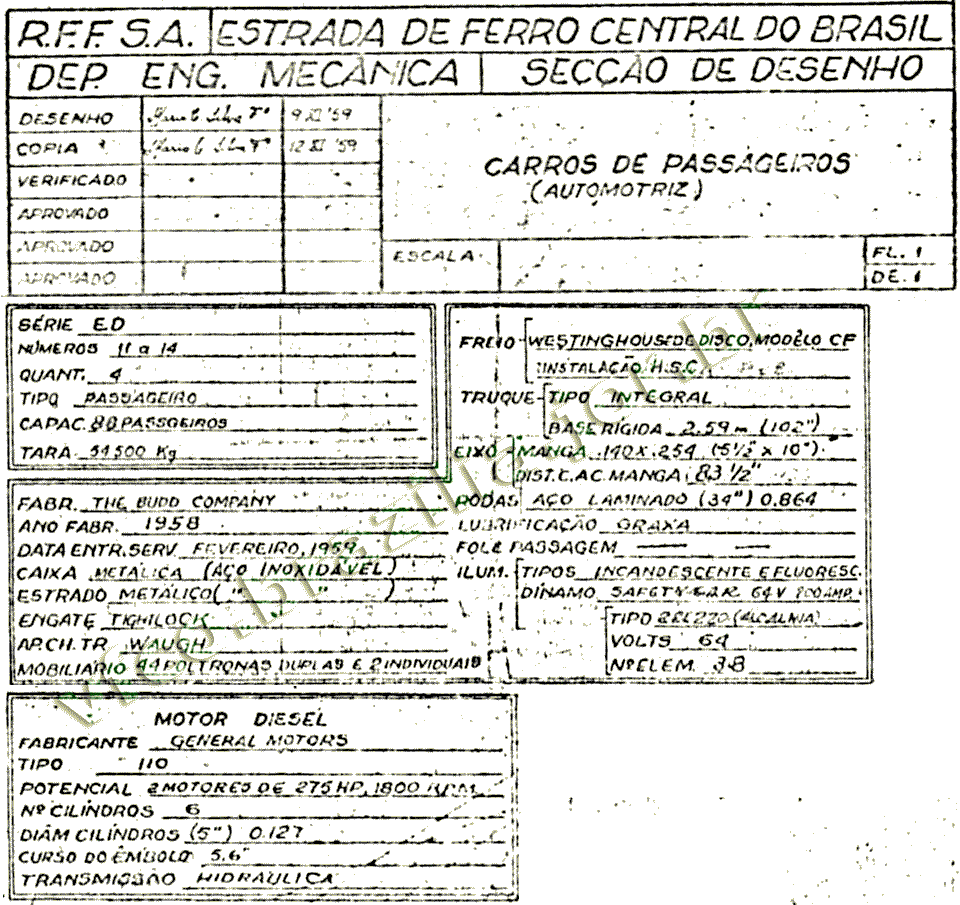 R.F.F. S.A. ESTRADA DE FERRO CENTRAL DO BRASIL
DEP. ENG. MECÂNICA SECÇÃO DE DESENHO
DESENHO 9 XI '59
COPIA 12 XI '59
VERIFICADO
APROVADO
APROVADO
APROVADO
CARROS DE PASSAGEIROS
(AUTOMOTRIZ)
ESCALA
FL. 1
DE. 1
SÉRIE E.D
NÚMEROS 11 a 14
QUANT. 4
TIPO PASSAGEIRO
CAPAC. 80 PASSGEIROS
TARA 54500 Kg
FABR. THE BUDD COMPANY
ANO FABR. 1958
DATA ENTR. SERV FEVEREIRO, 1959
CAIXA METÁLICA (AÇO INOXIDÁVEL)
ESTRADO METÁLICO ( " " )
ENGATE TIGHLOCK
AP. CH. TR WAUGH
MOBILIARIO 44 POLTRONAS DUPLAS E 2 INDIVIDUAIS
FREIO WESTINGHOUSE DE DISCO, MODÊLO CF
INSTALAÇÃO H.S.C.
TRUQUE TIPO INTEGRAL
BASE RÍGIDA 2.59 m (102")
EIXO MANGA 140 X .254 (5½" x 10")
DIST. C. A C. MANGA 83 ½"
RODAS AÇO LAMINADO (34") 0.864
LUBRIFICAÇÃO GRAXA
FOLE PASSAGEM
ILUM. TIPOS INCANDESCENTE E FLUORESC.
DÍNAMO 64 V
TIPO (ALCALINA)
VOLTS 64
Nº ELEM. 38
MOTOR DIESEL
FABRICANTE GENERAL MOTORS
TIPO 110
POTENCIAL 2 MOTORES DE 275 HP, 1800 R.P.M.
Nº CILÍNDROS 6
DIÂM CILÍNDROS (5") 0.127
CURSO DO ÊMBOLO 5.6"
TRANSMISSÃO HIDRÁULICA